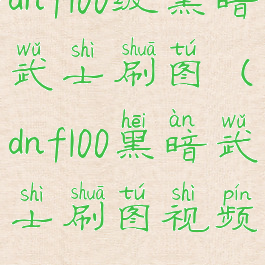 dnf100级黑暗
wǔ shì shuā tú
武士刷图（
hēi àn wǔ
dnf100黑暗武
shì shuā tú shì pín
士刷图视频